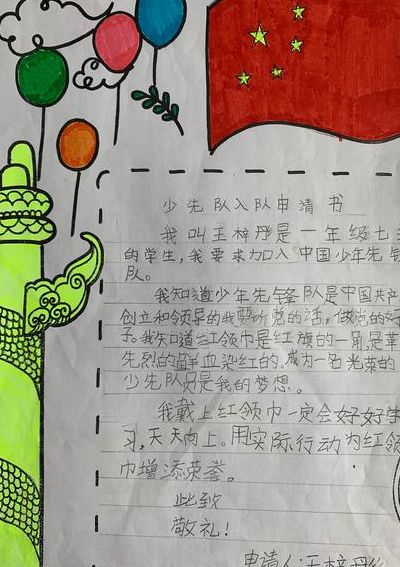 少先队入队申请书
我叫王梓彤是一年级七
的学生，我要求加入中国少年先锋
队。
我知道少年先锋队是中国共产
创立和领导的我要听党的话，做党的好
子。我知道红领巾是红旗的一角，是革
先烈的鲜血染红的。成为一名光荣的
少先队员是我的梦想。
我戴上红领巾一定会好好学
习，天天向上。用实际行动为红领
巾增添荣誉。
此致
敬礼！
申请人：王梓彤